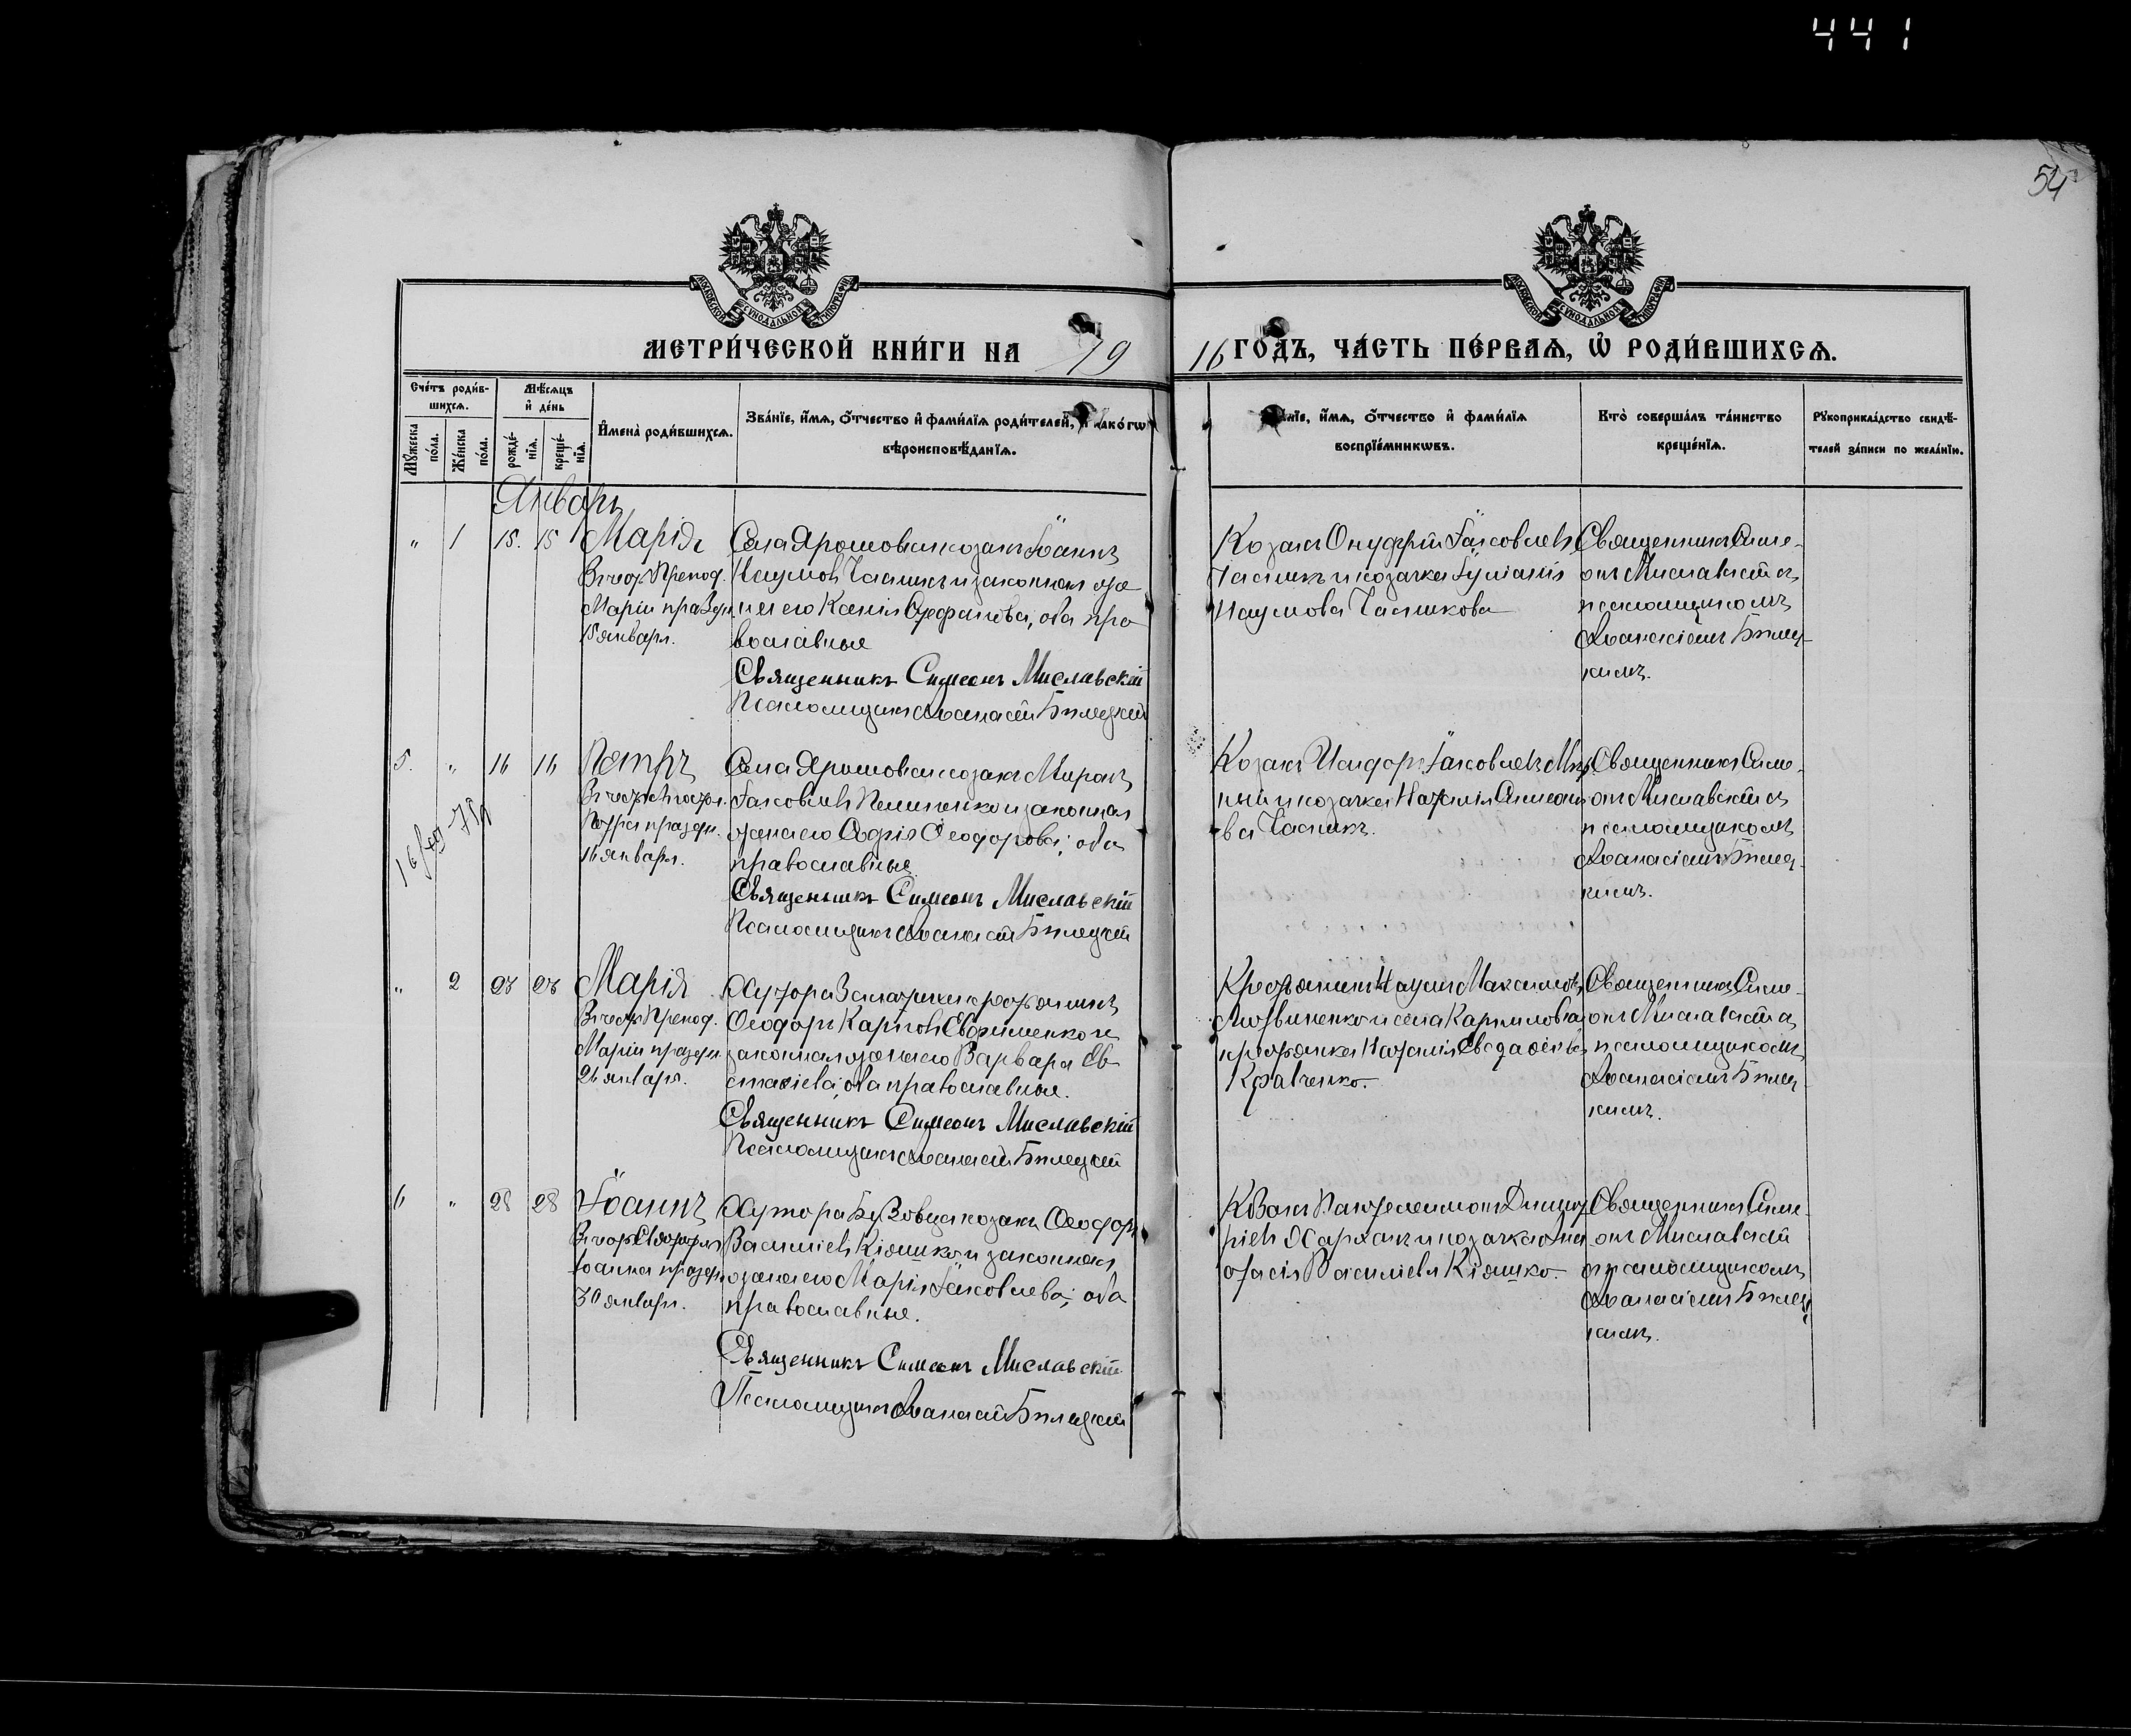 441
54
МОСКОВСКОЙ СУНОДАЛЬНОЙ ТИПОГРАФІИ
МОСКОВСКОЙ СУНОДАЛЬНОЙ ТИПОГРАФІИ
МЕТРИ́ЧЕСКОЙ КНИ́ГИ НА 19
16 ГОДЪ, ЧА́СТЬ ПЕ́РВАѦ, Ѡ҆ РОДИ́ВШИХСѦ.
Сче́тъ роди́в-
шихсѧ.
Мѣ́сѧцъ
и҆ де́нь
Мꙋ́жеска
по́ла.
Же́нска
по́ла.
рожде́-
нїѧ.
креще́-
нїѧ.
И҆мена̀ роди́вшихсѧ.
Зва́нїе, и҆́мѧ, ѻ҆́тчество и҆ фами́лїѧ роди́телей, и҆ како́гѡ
вѣроисповѣ́данїѧ.
и҆́мѧ, ѻ҆́тчество и҆ фами́лїѧ
воспрїе́мникѡвъ.
Кто̀ соверша́лъ та́инство
креще́нїѧ.
Рꙋкоприкла́дство свидѣ́-
телей за́писи по жела́нїю.
Январь
" 1 15. 15 Марія
Въ честь Препод.
Маріи праздн.
15 января.
Села Ярошовки козакъ Іоаннъ
Наумовъ Часникъ и законная же
на его Ксенія Стефанова, оба пра
вославные
Священникъ Симеонъ Миславскій
Псаломщикъ Аѳанасій Билецкій
Козакъ Онуфрій Іаковлевъ
Часникъ и козачка Іуліанія
Наумова Часникова
Священникъ Симе-
онъ Миславскій съ
псаломщикомъ
Аѳанасіемъ Билец-
кимъ.
5. " 16 16 Петръ
Въ честь Апостол.
Петра праздн.
16 января.
Села Ярошовки козакъ Миронъ
Іаковлевъ и законная
жена его Софія Ѳеодорова, оба
православные
Священникъ Симеонъ Миславскій
Псаломщикъ Аѳанасій Билецкій
Козакъ Исидоръ Іаковлевъ
и козачка Наталія Симеоно
ва Часникъ.
Священникъ Симе-
онъ Миславскій съ
псаломщикомъ
Аѳанасіемъ Билец-
кимъ.
" 2 Марія
Въ честь Препод.
Маріи праздн.
26 января.
Хутора крестьянинъ
Ѳеодоръ Карповъ Евфименко и
законная жена его Варвара Ев-
стаѳіева, оба православные.
Священникъ Симеонъ Миславскій
Псаломщикъ Аѳанасій Билецкій
Крестьянинъ Наумъ Максимовъ
Литвиненко и села
крестьянка Наталія
Кравченко.
Священникъ Симе-
онъ Миславскій съ
псаломщикомъ
Аѳанасіемъ Билец-
кимъ.
6 " 28 28 Іоаннъ
Въ честь Святителя
Іоанна праздн.
30 января.
Хутора Бузовца козакъ Ѳеодоръ
Василіевъ Кіяшко и законная
жена его Марія Іаковлева, оба
православные.
Священникъ Симеонъ Миславскій
Псаломщикъ Аѳанасій Билецкій
Козакъ Пантелеимонъ Димит
ріевъ и козачка Ана
стасія Василіева Кіяшко.
Священникъ Симе-
онъ Миславскій
съ псаломщикомъ
Аѳанасіемъ Билец
кимъ.